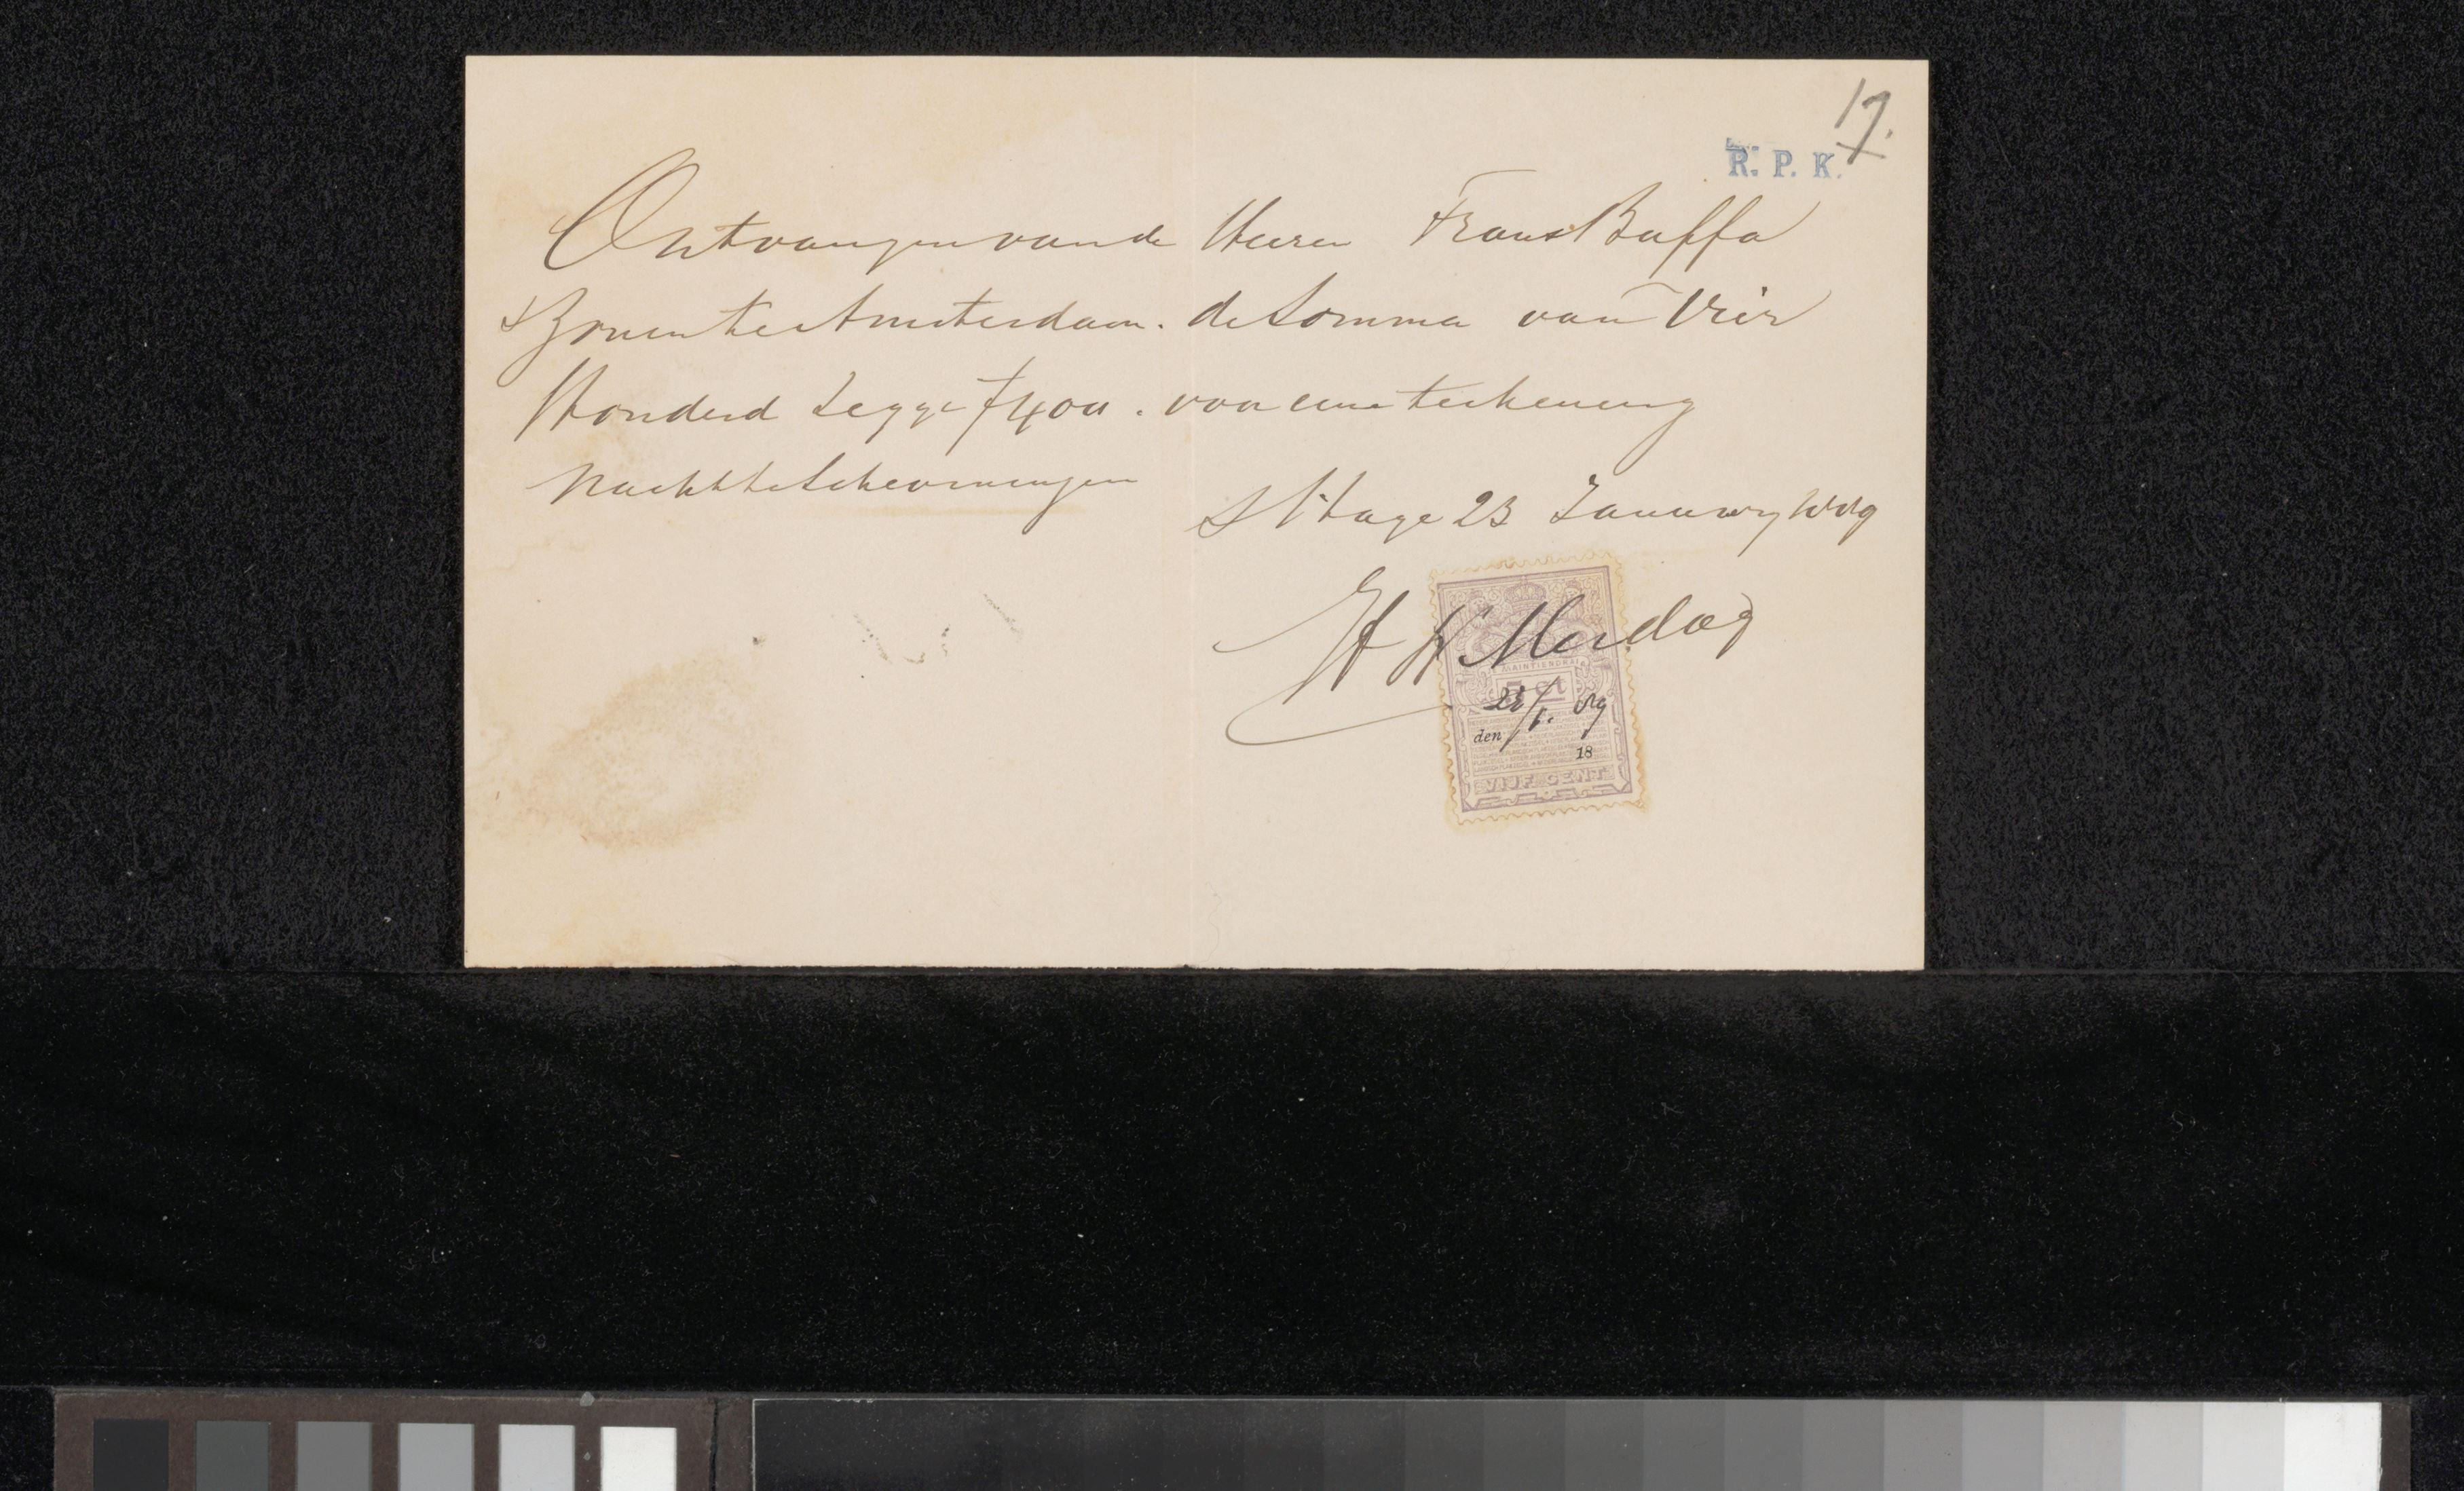 17.
R. P. K.
Ontvangen van de Heeren Frans Buffa
& Zonen te Amsterdam. de Somma van Vier
Honderd Zegge ƒ 400. voor eene teekening
Nacht te Scheveningen
s Hage 23 January 1889
H W Mesdag
MAINTIENDRAI
5 Ct
23/1. 89
den
18
VIJF CENT